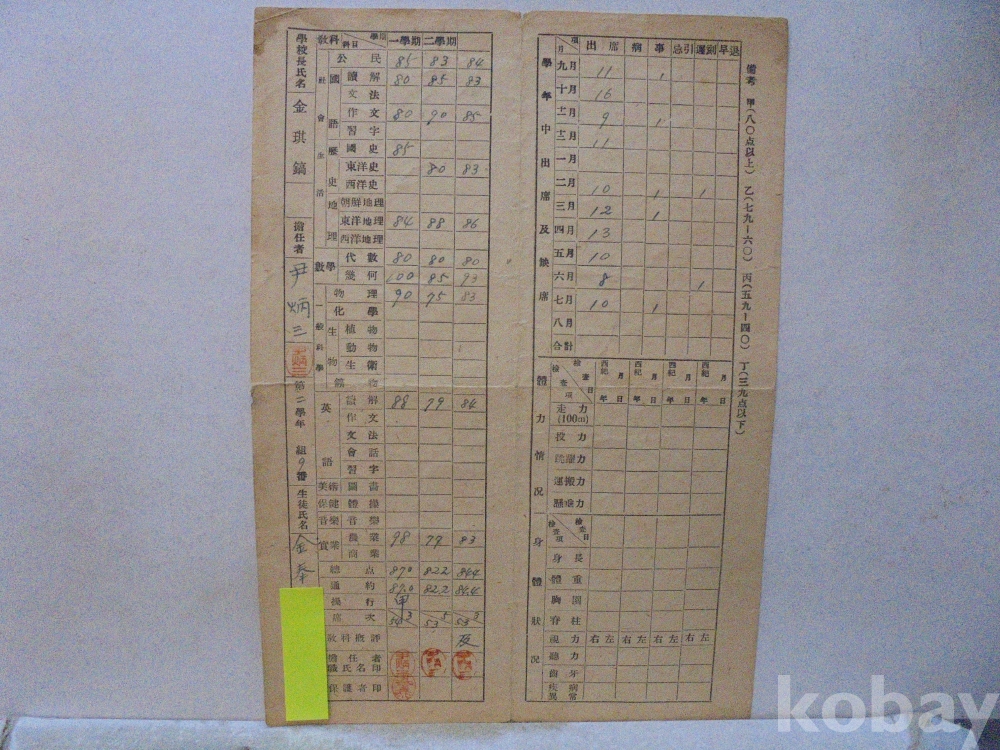 學校長氏名 金琪鎬
擔任者 尹炳三
第二學年 組 9番 生徒氏名 金泰
敎科 科目 學期 一學期 二學期
社會生活
公民 85 83 84
國語
讀解 80 85 83
文法
作文 80 90 85
習字
歷史
國史 85
東洋史 80 83
西洋史
地理
朝鮮地理
東洋地理 84 88 86
西洋地理
數學
代數 80 80 80
幾何 100 85 93
一般科學
物理 90 75 83
化學
生物
植物
動物
生衛
英語
讀解 88 79 84
作文
文法
會話
習字
圖畵
保健 體操
音樂 音樂
實業
農業 98 77 83
商業
總点 870 822 844
通約 87.0 82.2 84.4
操行 甲
席次
敎科槪評
擔任者職氏名印
保護者印
項 月 出席 病 事 忌引 遲刻 早退
學年中出席及缺席
九月 11 1
十月 16
十一月 9 1
十二月 11
一月
二月 10 1 1
三月 12 1
四月 13
五月 10
六月 8 1
七月 10 1
八月
合計
體力情況
檢査項 檢査日 西紀 年 月 日 西紀 年 月 日 西紀 年 月 日 西紀 年 月 日
走力 (100m)
投力
跳躍力
運搬力
懸垂力
身體狀況
檢査項 檢査日
身長
體重
胸圍
脊柱
視力 右 左 右 左 右 左 右 左
聽力
齒牙
疾病異常
備考 甲(八〇点以上) 乙(七九—六〇) 丙(五九—四〇) 丁(三九点以下)
kobay